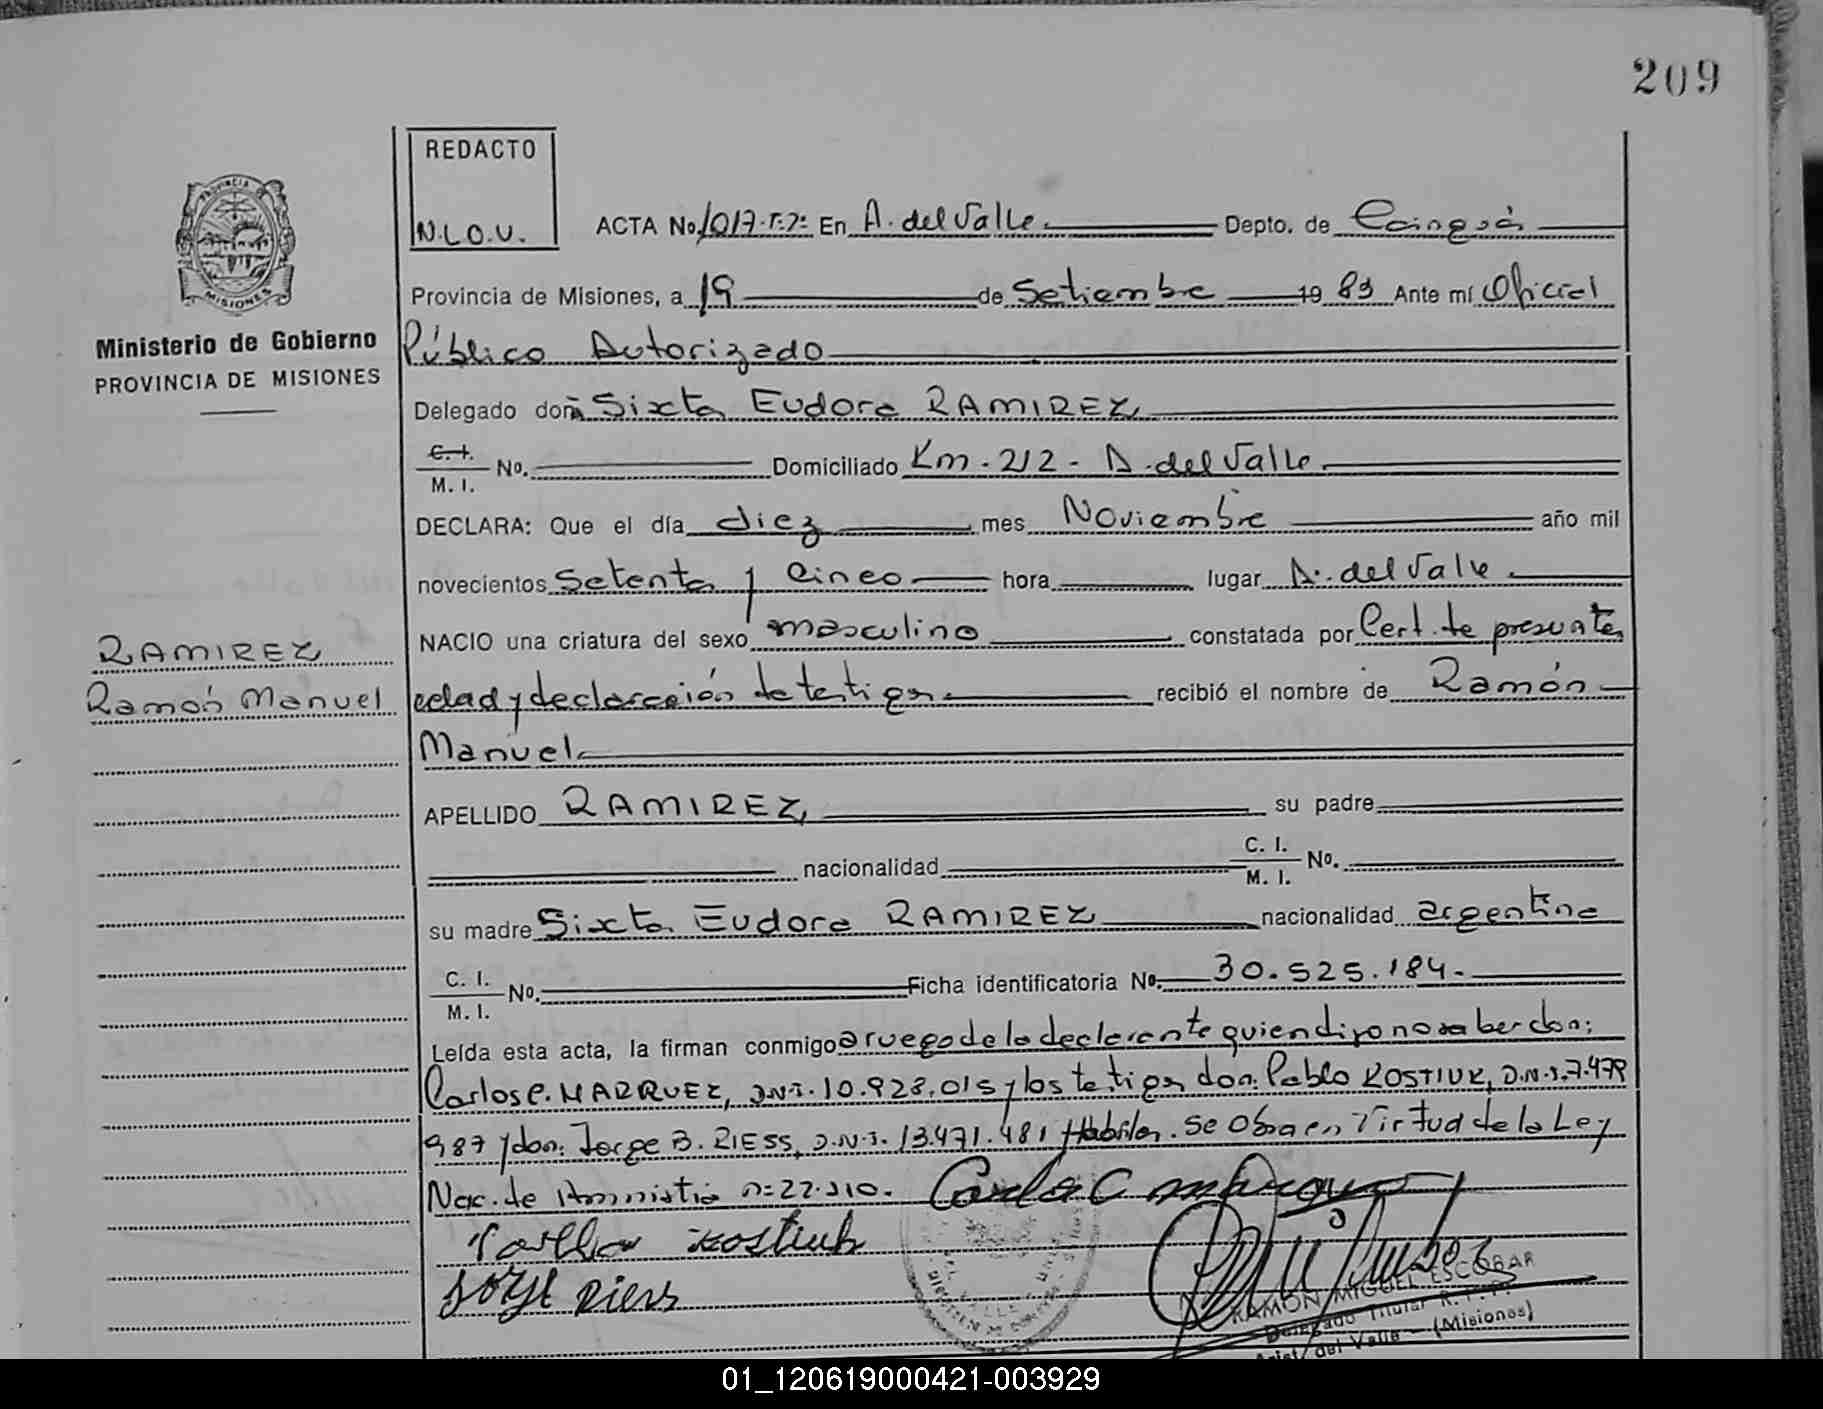 209
REDACTO
N.L.O.V.
ACTA No. 1017.T.7: En A. del Valle. Depto. de Cainguás
Provincia de Misiones, a 19 de Setiembre 19 89 Ante mí Oficial
Ministerio de Gobierno
PROVINCIA DE MISIONES
Público Autorizado
Delegado doña Sixta Eudora RAMIREZ
C. I. M. I. No. Domiciliado Km. 212 - A. del Valle.
DECLARA: Que el día diez mes Noviembre año mil
novecientos Setenta y Cinco hora lugar A. del Valle.
NACIO una criatura del sexo masculino constatada por Cert. de presunta
RAMIREZ
Ramón Manuel
edad y declaración de testigos. recibió el nombre de Ramón
Manuel
APELLIDO RAMIREZ, su padre
nacionalidad C. I. M. I. No.
su madre Sixta Eudora RAMIREZ nacionalidad argentina
C. I. M. I. No. Ficha identificatoria No. 30.525.184.
Leída esta acta, la firman conmigo a ruego de la declarante quien dijo no saber don:
Carlos C. MARQUEZ, D.N.I. 10.928.015 y los testigos don: Pablo KOSTIUK, D.N.I. 7.479
987 y don: Jorge B. RIESS, D.N.I. 13.471.481 Hábiles. Se Obra en Virtud de la Ley
Nac. de Amnistía n= 22.210.
Kostiuk
RAMON MIGUEL ESCOBAR
Delegado Titular R. P. P.
Arist. del Valle - (Misiones)
01_120619000421-003929